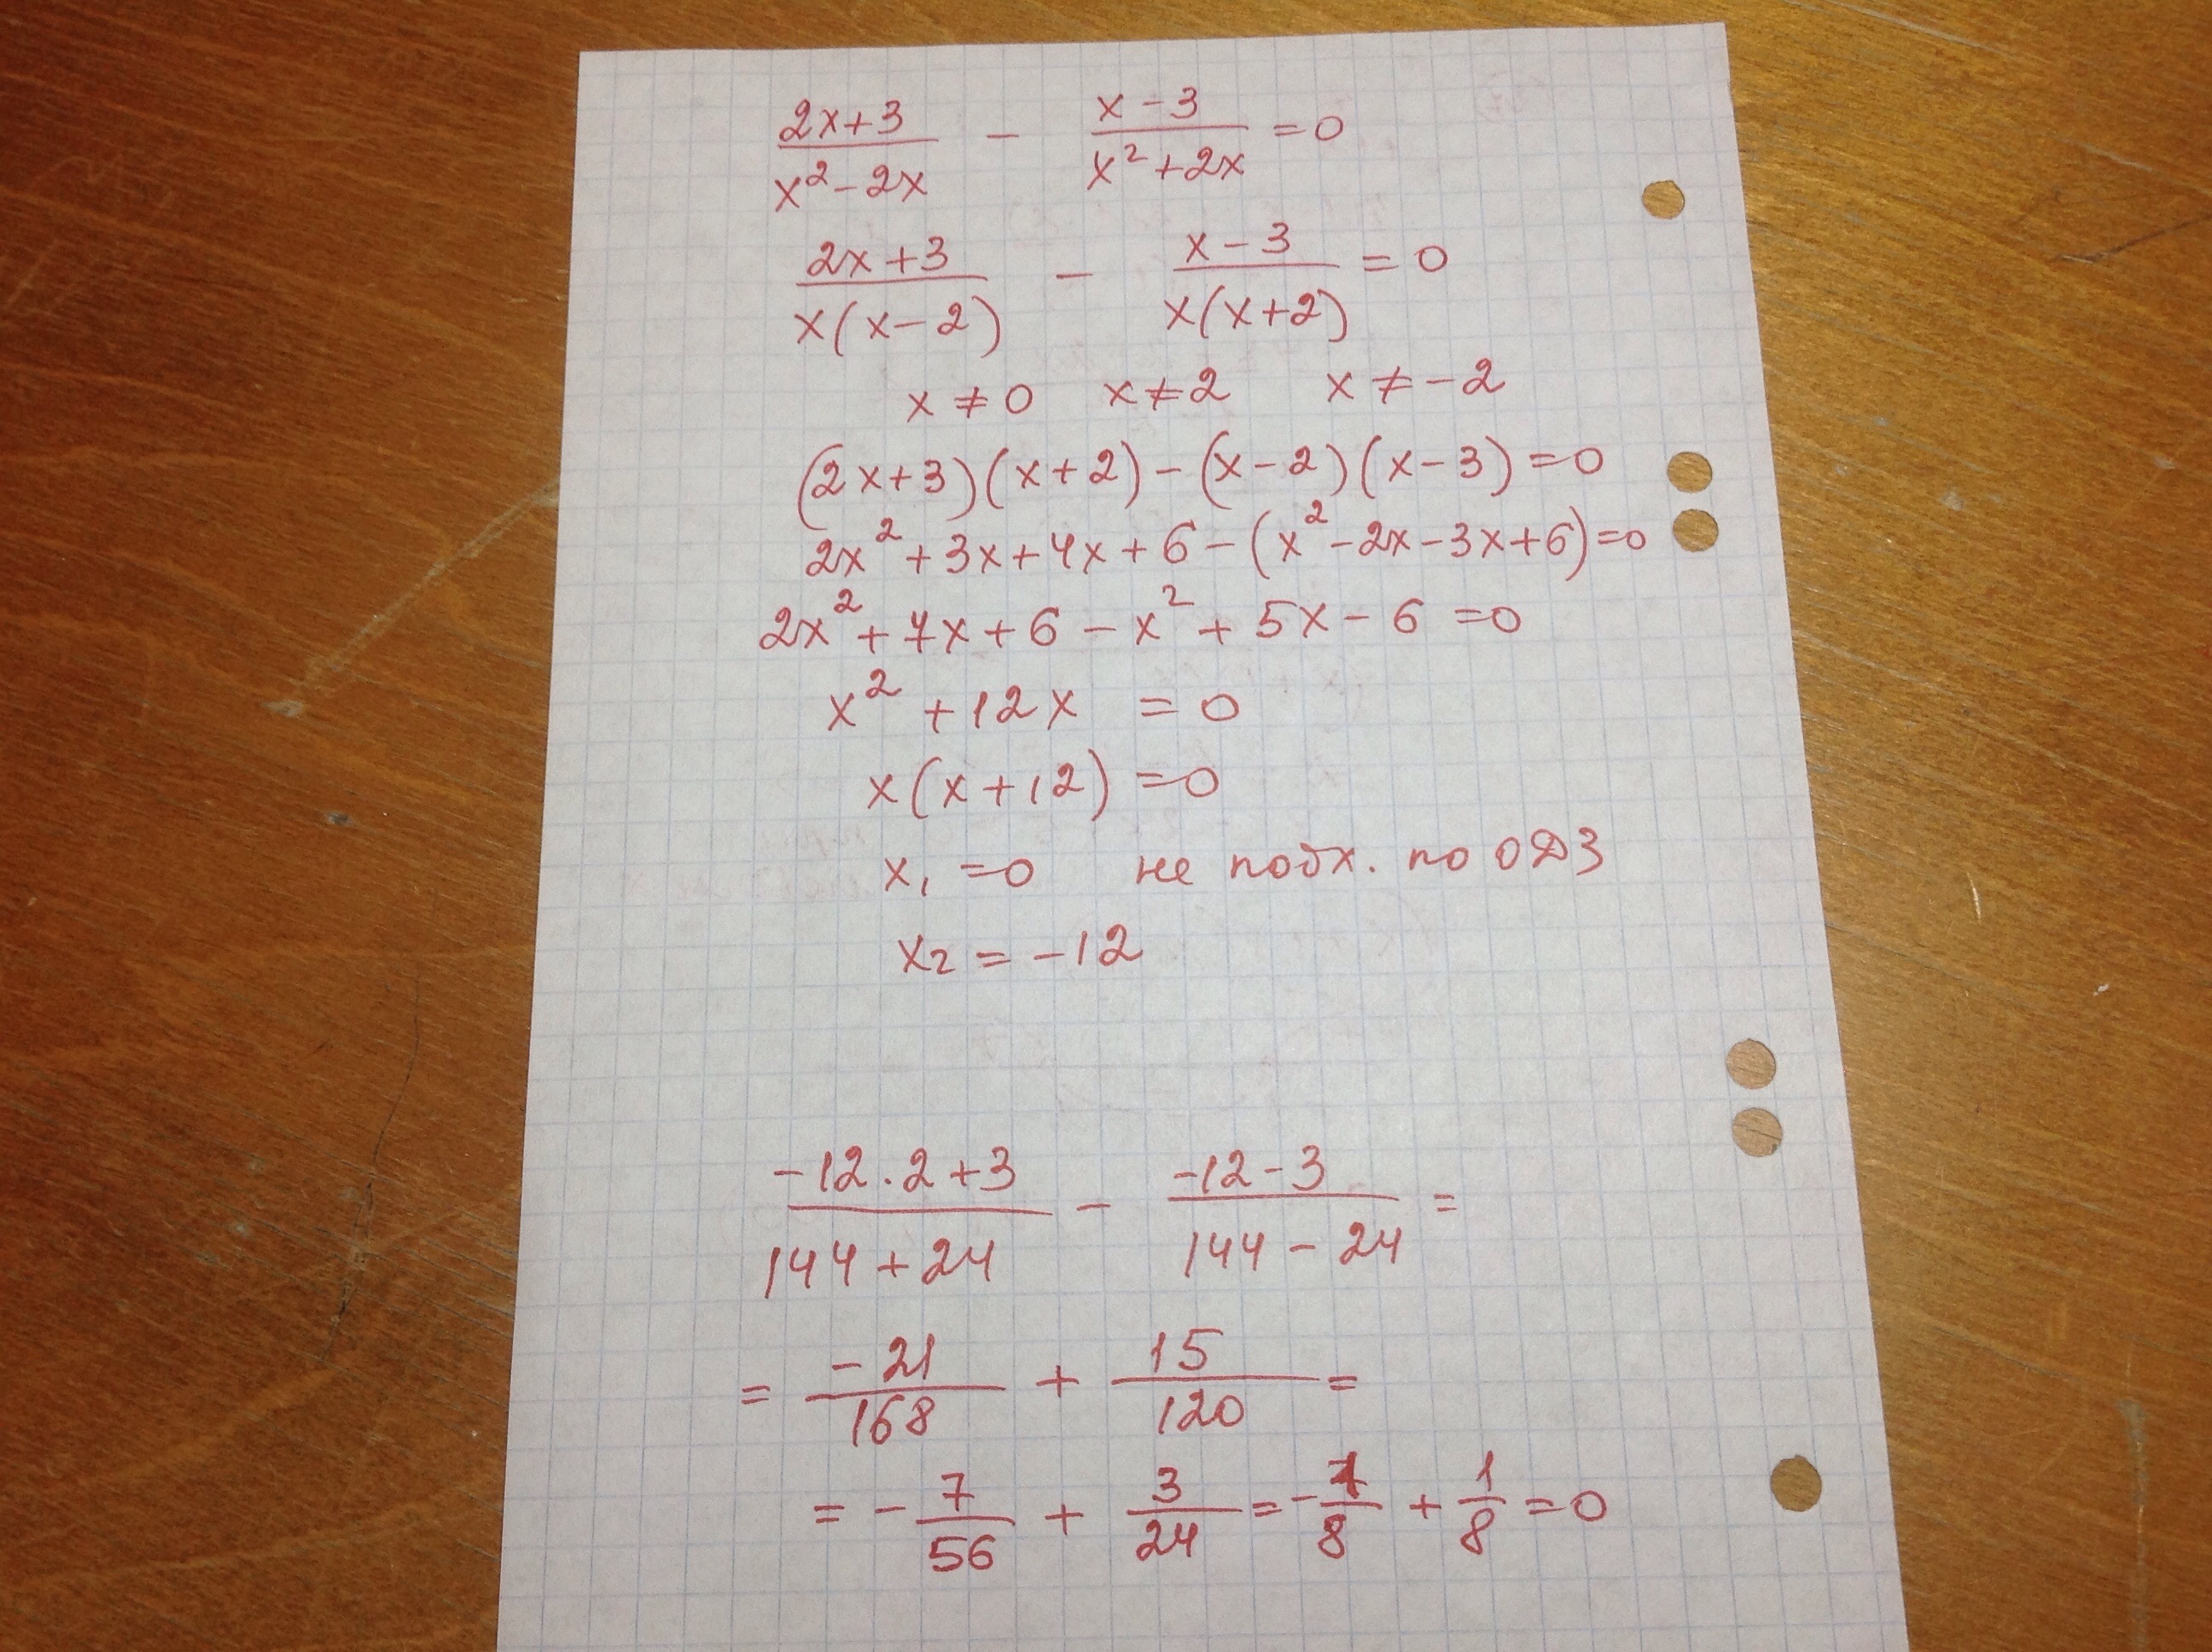 (2x+3)/(x²-2x) - (x-3)/(x²+2x) = 0
(2x+3)/(x(x-2)) - (x-3)/(x(x+2)) = 0
x ≠ 0 x ≠ 2 x ≠ -2
(2x+3)(x+2)-(x-2)(x-3)=0
2x²+3x+4x+6-(x²-2x-3x+6)=0
2x²+7x+6-x²+5x-6=0
x²+12x =0
x(x+12)=0
x₁=0 не подх. по ОДЗ
x₂=-12
(-12·2+3)/(144+24) - (-12-3)/(144-24) =
= -21/168 + 15/120 =
= -7/56 + 3/24 = -1/8 + 1/8 = 0